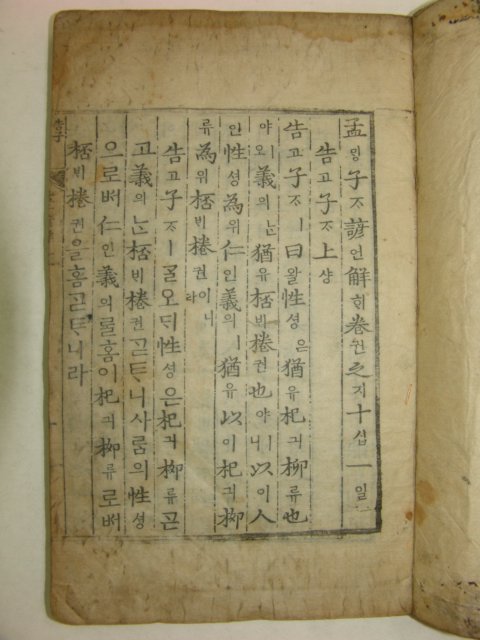 孟ᄆᆡᆼ子ᄌᆞ諺언解ᄒᆡ卷권之지十십一일
告고子ᄌᆞ上샹
告고子ᄌᆞㅣ曰왈性셩은猶유杞긔柳류也
야ㅣ오義의ᄂᆞᆫ猶유桮ᄇᆡ棬권也야ㅣ니以이人
인性셩為위仁인義의ㅣ猶유以이杞긔柳
류為위桮ᄇᆡ棬권이니라
告고子ᄌᆞㅣᄀᆞᆯ오ᄃᆡ性셩은杞긔柳류ᄀᆞᆮ
고義의ᄂᆞᆫ桮ᄇᆡ棬권ᄀᆞᄐᆞ니사ᄅᆞᆷ의性셩
으로ᄡᅥ仁인義의ᄅᆞᆯ홈이杞긔柳류로ᄡᅥ
桮ᄇᆡ棬권을홈ᄀᆞᄐᆞ니라
告子